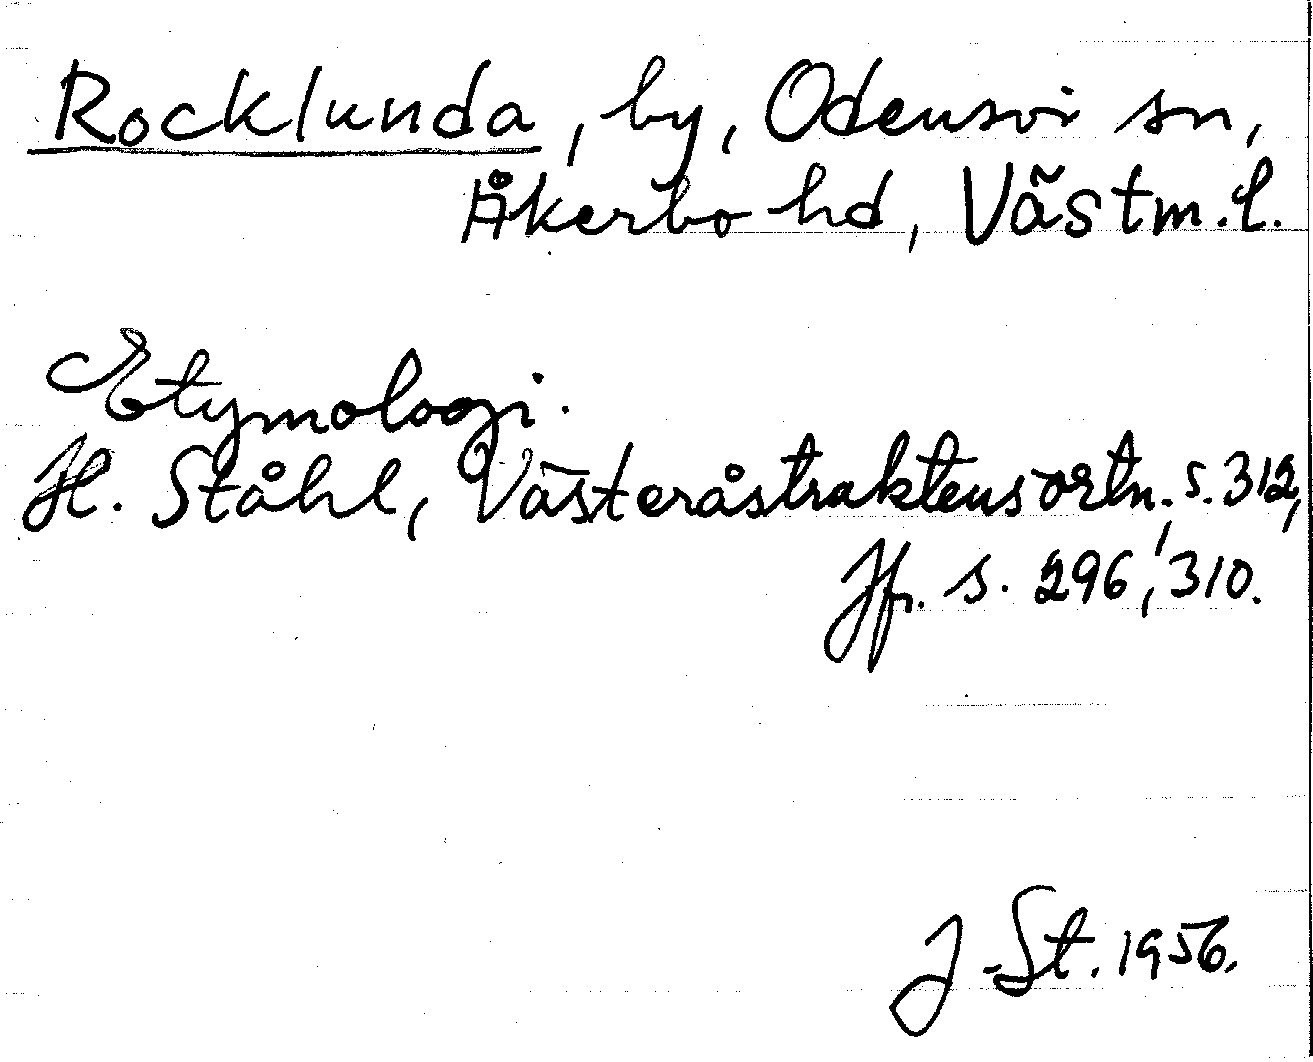 Rocklunda, by, Odensvi sn,
Åkerbo hd, Västm. l.
Etymologi.
H. Ståhl, Västeråstraktens ortn., s. 312,
Jfr. s. 296, 310.
J. St. 1956.